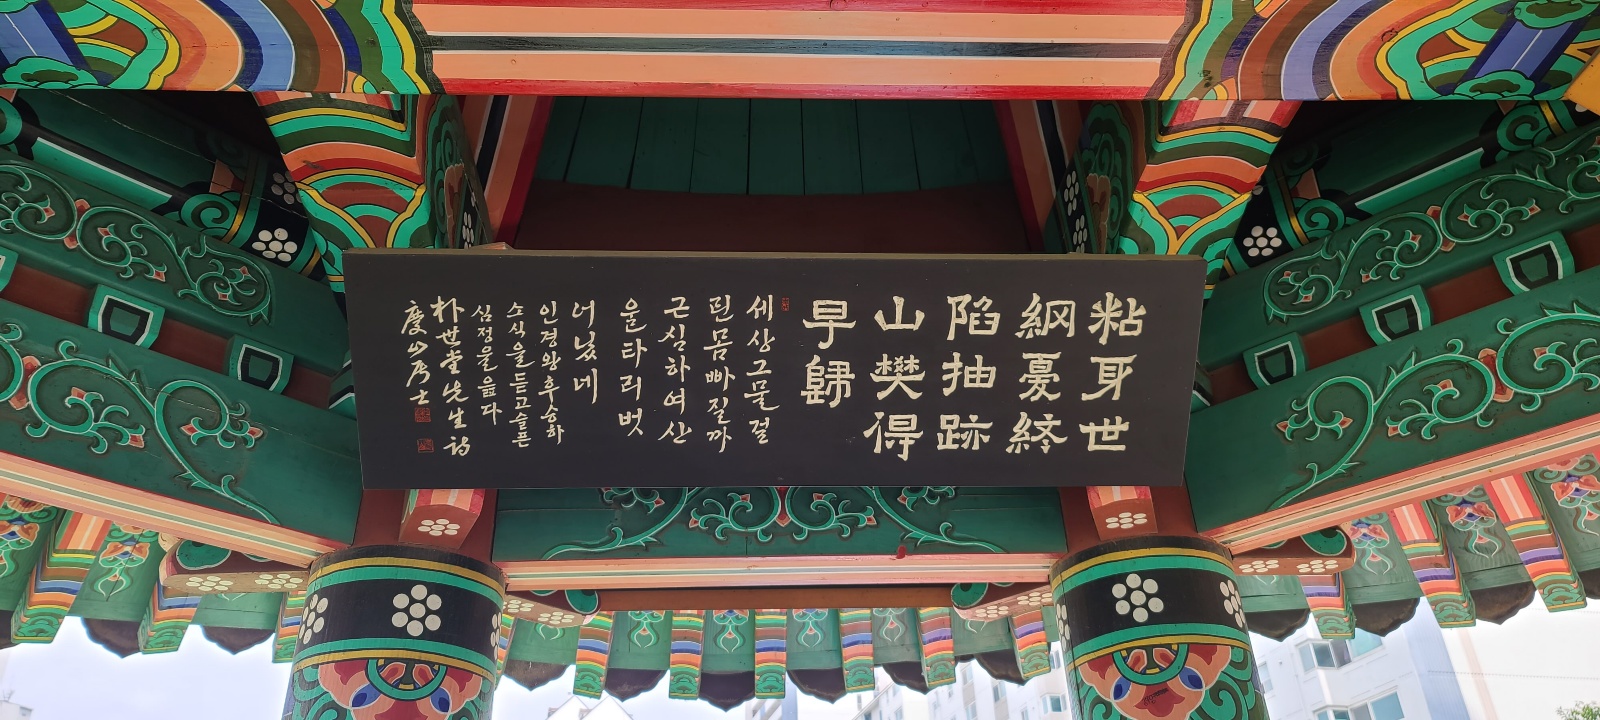 粘身世
網憂終
陷抽跡
山樊得
早歸
세상그물걸
린몸빠질까
근심하여산
울타리벗
어났네
인경왕후승하
소식을듣고슬픈
심정을읊다
朴世堂先生詩